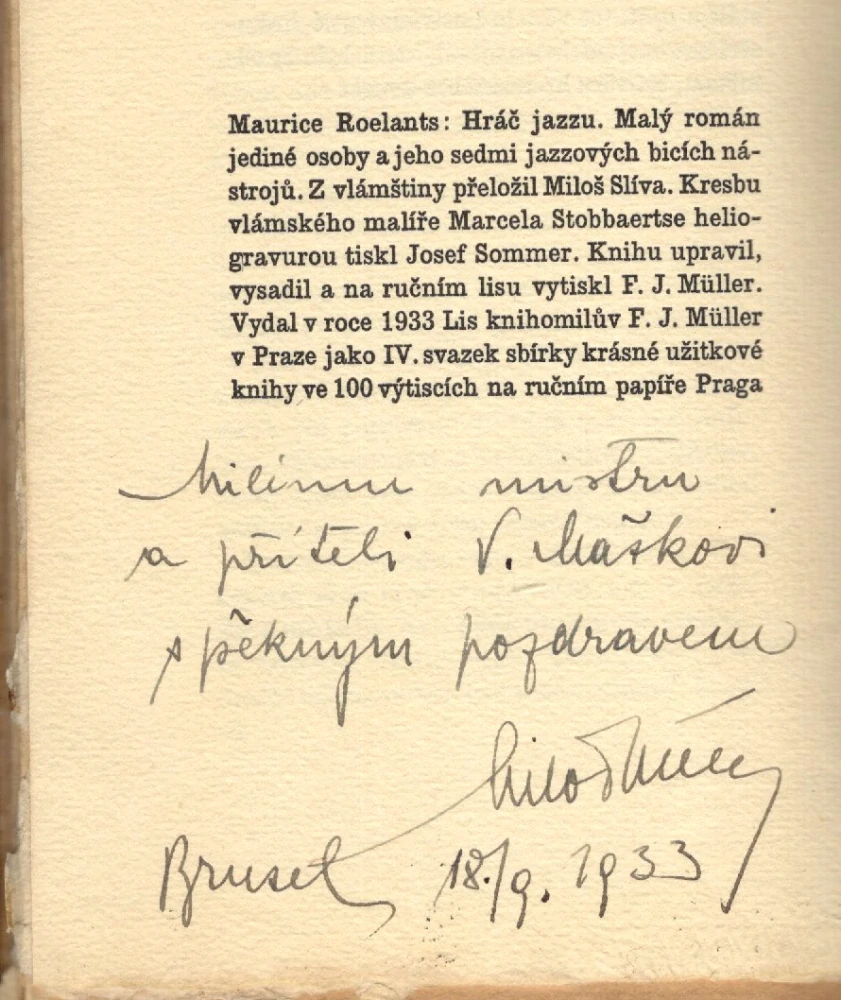 Maurice Roelants: Hráč jazzu. Malý román
jediné osoby a jeho sedmi jazzových bicích ná-
strojů. Z vlámštiny přeložil Miloš Slíva. Kresbu
vlámského malíře Marcela Stobbaertse helio-
gravurou tiskl Josef Sommer. Knihu upravil,
vysadil a na ručním lisu vytiskl F. J. Müller.
Vydal v roce 1933 Lis knihomilův F. J. Müller
v Praze jako IV. svazek sbírky krásné užitkové
knihy ve 100 výtiscích na ručním papíře Praga
Milému mistru
a příteli V. Maškovi
s pěkným pozdravem
Miloš
Brusel 18./9. 1933